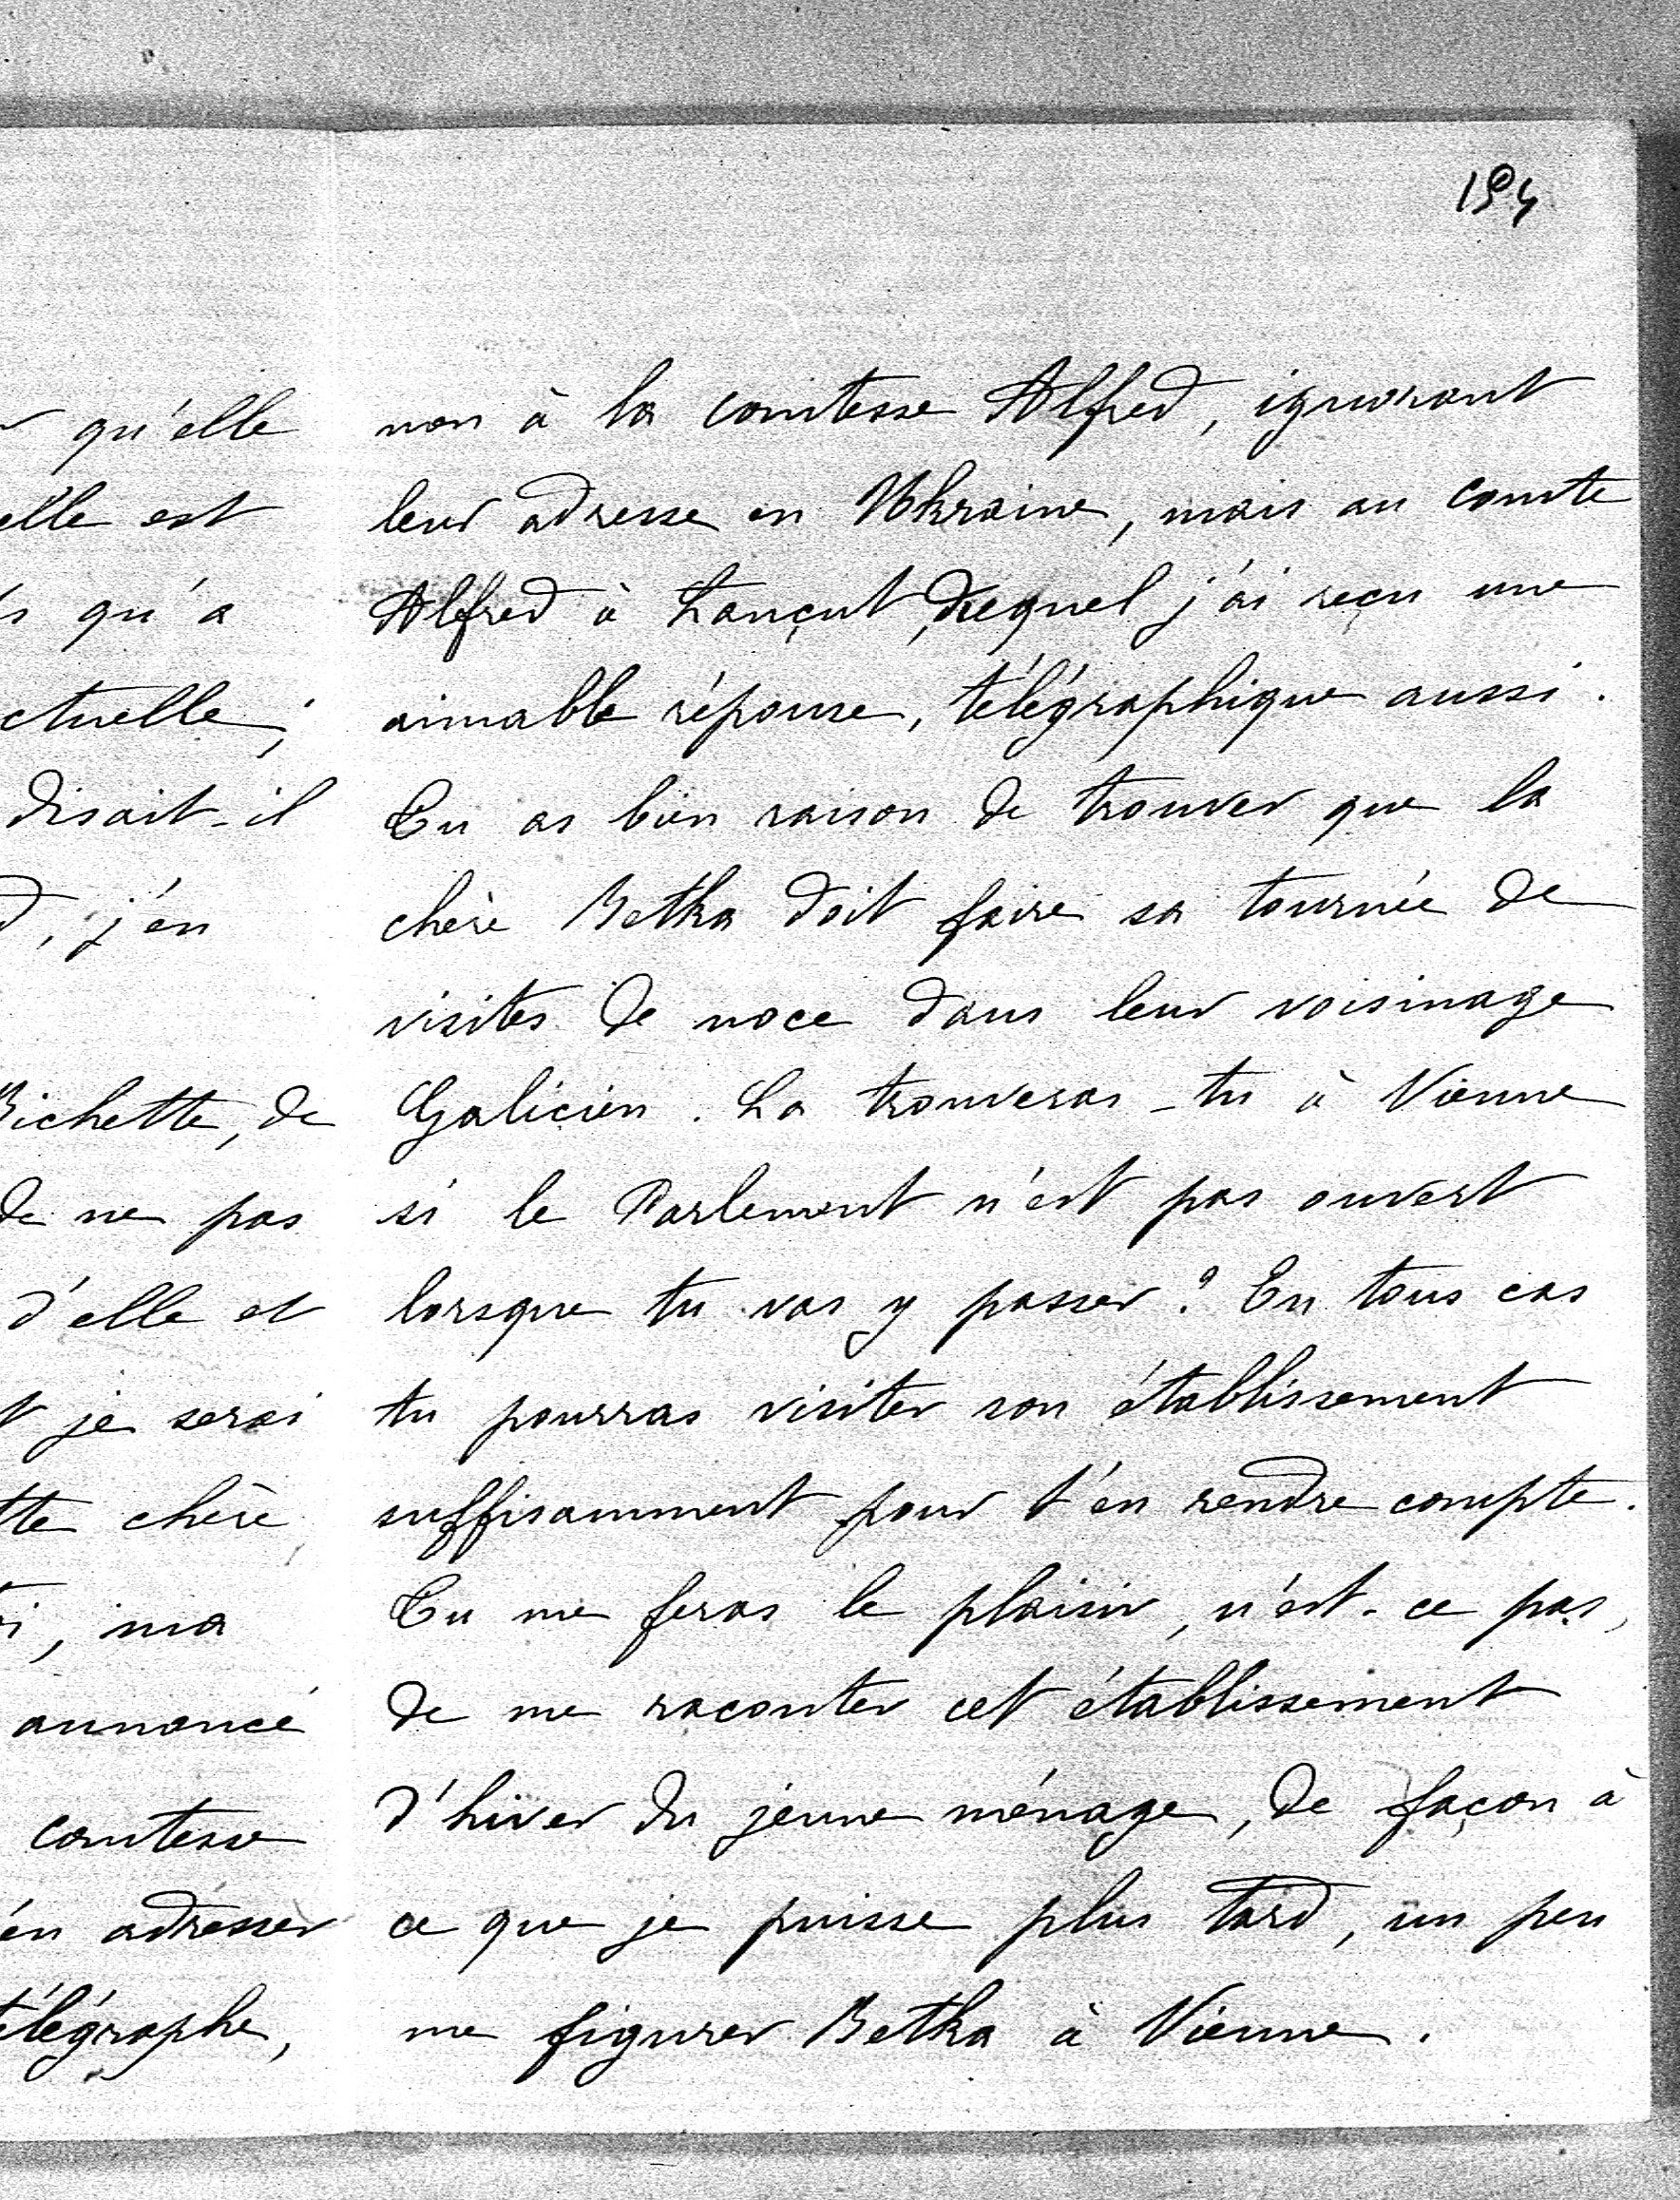 194
qu'elle
elle est
s qu'a
ctuelle;
disait-il
d, j'en
Bichette, de
de ne pas
d'elle et
t je serai
tte chère
i, ma
annoncé
comtesse
en adresser
télégraphe,
non à la comtesse Alfred, ignorant
leur adresse en Ukraine, mais au comte
Alfred à Łançut, duquel j'ai reçu une
aimable réponse, télégraphique aussi.
Tu as bien raison de trouver que la
chère Betka doit faire sa tournée de
visites de noce dans leur voisinage
Galicien. La trouveras-tu à Vienne
si le Parlement n'est pas ouvert
lorsque tu vas y passer? En tous cas
tu pourras visiter son établissement
suffisamment pour t'en rendre compte.
Tu me feras le plaisir, n'est-ce pas,
de me raconter cet établissement
d'hiver du jeune ménage, de façon à
ce que je puisse plus tard, un peu
me figurer Betka à Vienne.